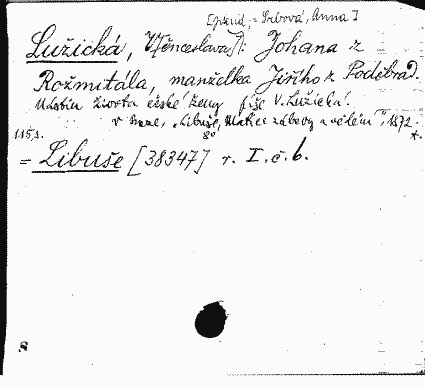 [pseud. = Srbová, Anna]
Lužická, V[ěnceslava]: Johana z
Rožmitála, manželka Jiřího z Poděbrad.
Nástin života české ženy. Píše V. Lužická.
v Praze, „Libuše, Matice zábavy a vědění", 1872.
115 s. 8°
= Libuše [38347] r. I. č. 6.
8